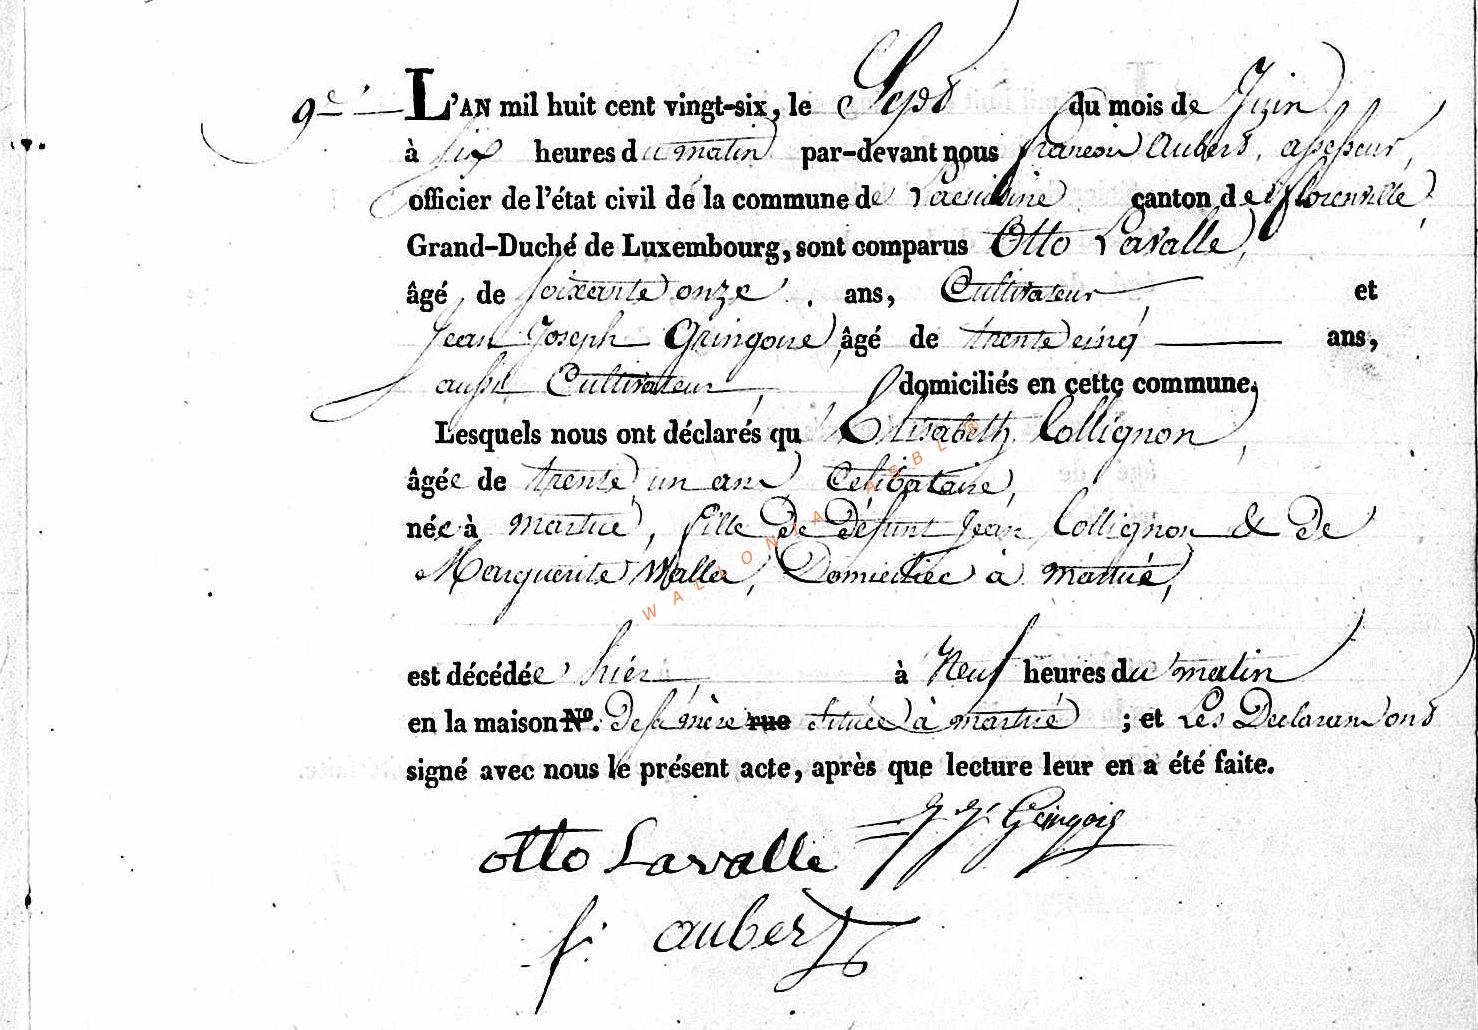 9e L'AN mil huit cent vingt-six, le Sept du mois de Juin
à six heures du matin par-devant nous françois Aubert, assesseur,
officier de l'état civil de la commune de canton de florenville,
Grand-Duché de Luxembourg, sont comparus Otto Lavalle,
âgé de soixante onze ans, Cultivateur, et
Jean Joseph Gringoire, âgé de trente cinq ans,
aussi Cultivateur, domiciliés en cette commune,
Lesquels nous ont déclarés qu'Elisabeth Collignon,
âgée de trente un ans, Celibataire,
née à martué, fille de défunt Jean Collignon & de
Marguerite Walla, Domiciliée à martué,
est décédée hier, à Neuf heures du matin
en la maison No. de sa mère rue située à martué ; et Les Declarans ont
signé avec nous le présent acte, après que lecture leur en a été faite.
otto Lavalle J J Gringois
f. aubert
WALLONIA ASBL ®